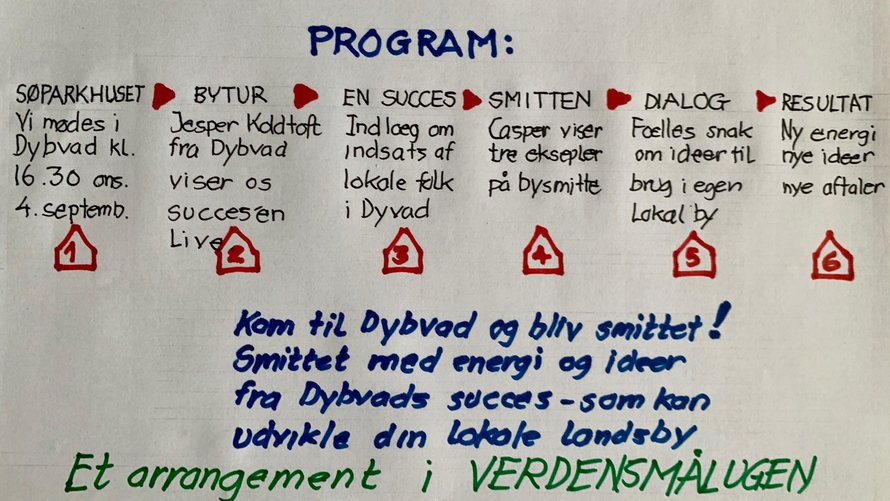 PROGRAM:
SØPARKHUSET
Vi mødes i
Dybvad kl.
16.30 ons.
4. septemb.
1
BYTUR
Jesper Koldtoft
fra Dybvad
viser os
succes'en
Live
2
EN SUCCES
Indlæg om
indsats af
lokale folk
i Dyvad
3
SMITTEN
Casper viser
tre eksepler
på bysmitte
4
DIALOG
Fælles snak
om ideer til
brug i egen
Lokal by
5
RESULTAT
Ny energi
nye ideer
nye aftaler
6
Kom til Dybvad og bliv smittet!
Smittet med energi og ideer
fra Dybvads succes - som kan
udvikle din lokale landsby
Et arrangement i VERDENSMÅLUGEN